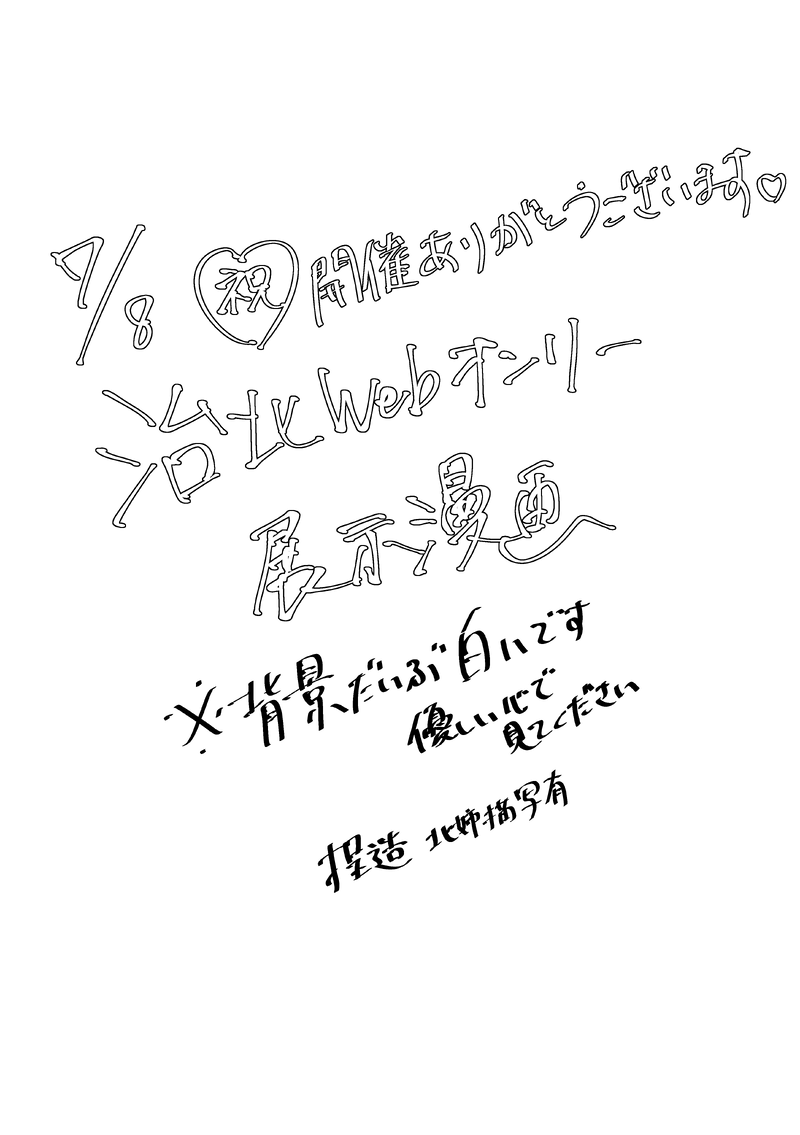 7/8 祝 開催ありがとうございます♡
治北Webオンリー
展示漫画
※背景だいぶ白いです
優しい心で
見てください
捏造 北姉描写有